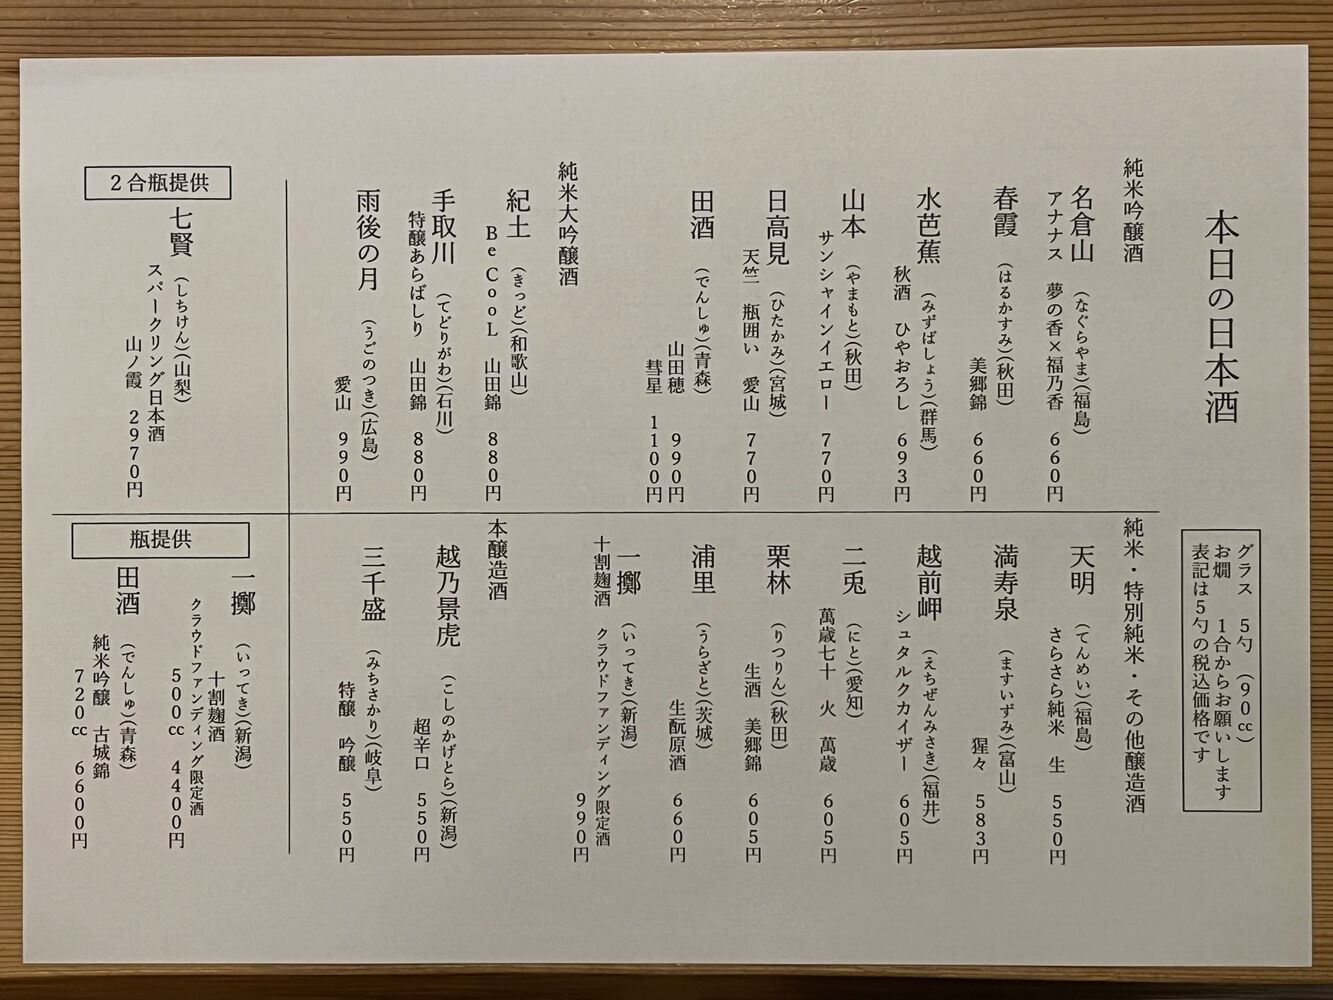 本日の日本酒
グラス　５勺　（９０㏄）
お燗　１合からお願いします
表記は５勺の税込価格です
純米吟醸酒
名倉山　（なぐらやま）（福島）
アナナス　夢の香×福乃香　６６０円
春霞　（はるかすみ）（秋田）
美郷錦　６６０円
水芭蕉　（みずばしょう）（群馬）
秋酒　ひやおろし　６９３円
山本　（やまもと）（秋田）
サンシャインイエロー　７７０円
日高見　（ひたかみ）（宮城）
天竺　瓶囲い　愛山　７７０円
田酒　（でんしゅ）（青森）
山田穂　９９０円
彗星　１１００円
純米大吟醸酒
紀土　（きっど）（和歌山）
ＢｅＣｏｏＬ　山田錦　８８０円
手取川　（てどりがわ）（石川）
特醸あらばしり　山田錦　８８０円
雨後の月　（うごのつき）（広島）
愛山　９９０円
純米・特別純米・その他醸造酒
天明　（てんめい）（福島）
さらさら純米　生　５５０円
満寿泉　（ますいずみ）（富山）
猩々　５８３円
越前岬　（えちぜんみさき）（福井）
シュタルクカイザー　６０５円
二兎　（にと）（愛知）
萬歳七十　火　萬歳　６０５円
栗林　（りつりん）（秋田）
生酒　美郷錦　６０５円
浦里　（うらざと）（茨城）
生酛原酒　６６０円
一擲　（いってき）（新潟）
十割麹酒　クラウドファンディング限定酒
９９０円
本醸造酒
越乃景虎　（こしのかげとら）（新潟）
超辛口　５５０円
三千盛　（みちさかり）（岐阜）
特醸　吟醸　５５０円
２合瓶提供
七賢　（しちけん）（山梨）
スパークリング日本酒
山ノ霞　２９７０円
瓶提供
一擲　（いってき）（新潟）
十割麹酒
クラウドファンディング限定酒
５００㏄　４４００円
田酒　（でんしゅ）（青森）
純米吟醸　古城錦
７２０㏄　６６００円